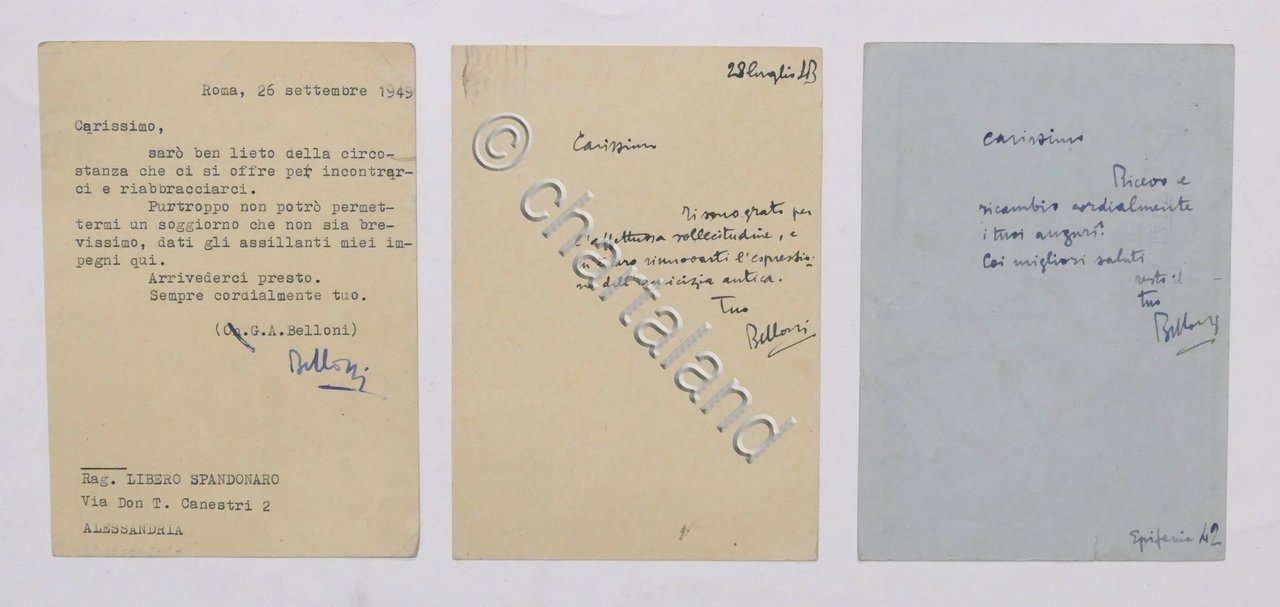 Roma, 26 settembre 1949
Carissimo,
sarò ben lieto della circo-
stanza che ci si offre per incontrar-
ci e riabbracciarci.
Purtroppo non potrò permet-
termi un soggiorno che non sia bre-
vissimo, dati gli assillanti miei im-
pegni qui.
Arrivederci presto.
Sempre cordialmente tuo.
(On.G.A.Belloni)
Belloni
Rag. LIBERO SPANDONARO
Via Don T. Canestri 2
ALESSANDRIA
28 luglio 43
Carissimo
Ti sono grato per
l'affettuosa sollecitudine, e
rinnovarti l'espressio-
ne dell'amicizia antica.
Tuo
Belloni
© chartaland
Carissimo
Ricevo e
ricambio cordialmente
i tuoi auguri.
Coi migliori saluti
resto il
tuo
Belloni
Epifania 42